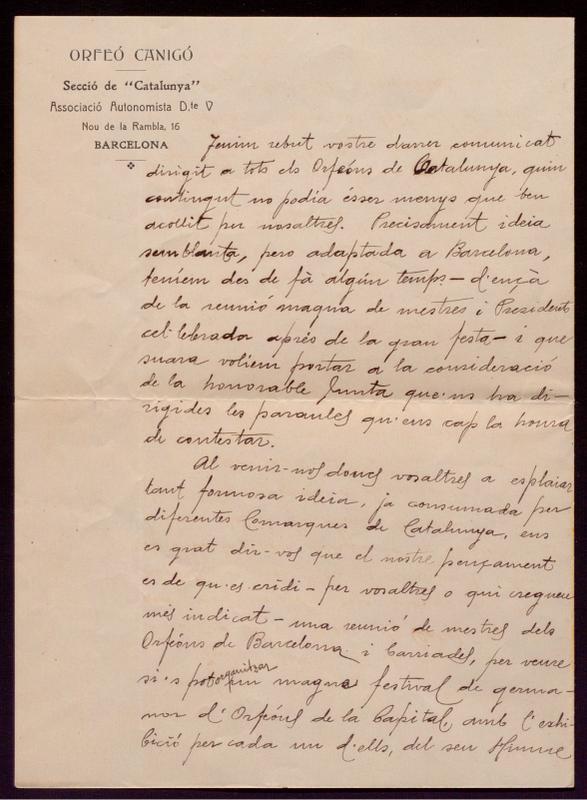 ORFEÓ CANIGÓ
Secció de "Catalunya"
Associació Autonomista D.te V
Nou de la Rambla, 16
BARCELONA
Tenim rebut vostre darrer comunicat
dirigit a tots els Orfeóns de Catalunya, quin
contingut no podia ésser menys que ben
acollit per nosaltres. Precisament ideia
semblanta, pero adaptada a Barcelona,
teniem des de fà algún temps — d'ençà
de la reunió magna de mestres i Presidents
cel·lebrada aprés de la gran festa — i que
suara voliem portar a la consideració
de la honorable Junta que·ns ha di-
rigides les paraules qu·ens cap la honra
de contestar.
Al venir-nos doncs vosaltres a esplaiar
tant formosa ideia, ja consumada per
diferentes Comarques de Catalunya, ens
es grat dir-vos que el nostre pençament
es de qu·es cridi — per vosaltres o qui cregueu
més indicat — una reunió de mestres dels
Orfeóns de Barcelona i barriades, per veure
si·s pot organitzar un magne festival de germa-
nor d'Orfeóns de la Capital, amb l'exhi-
bició per cada un d'ells, del seu Himne